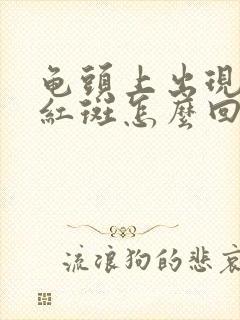 龟頭上出現
紅斑怎麼回
流浪狗的悲哀